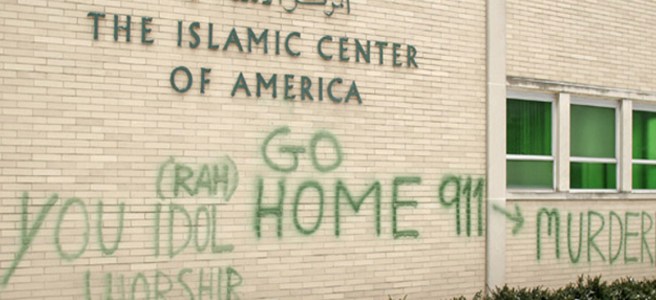 THE ISLAMIC CENTER
OF AMERICA
GO
YOU (RAH) IDOL HOME 911 → MURDER
WORSHIP